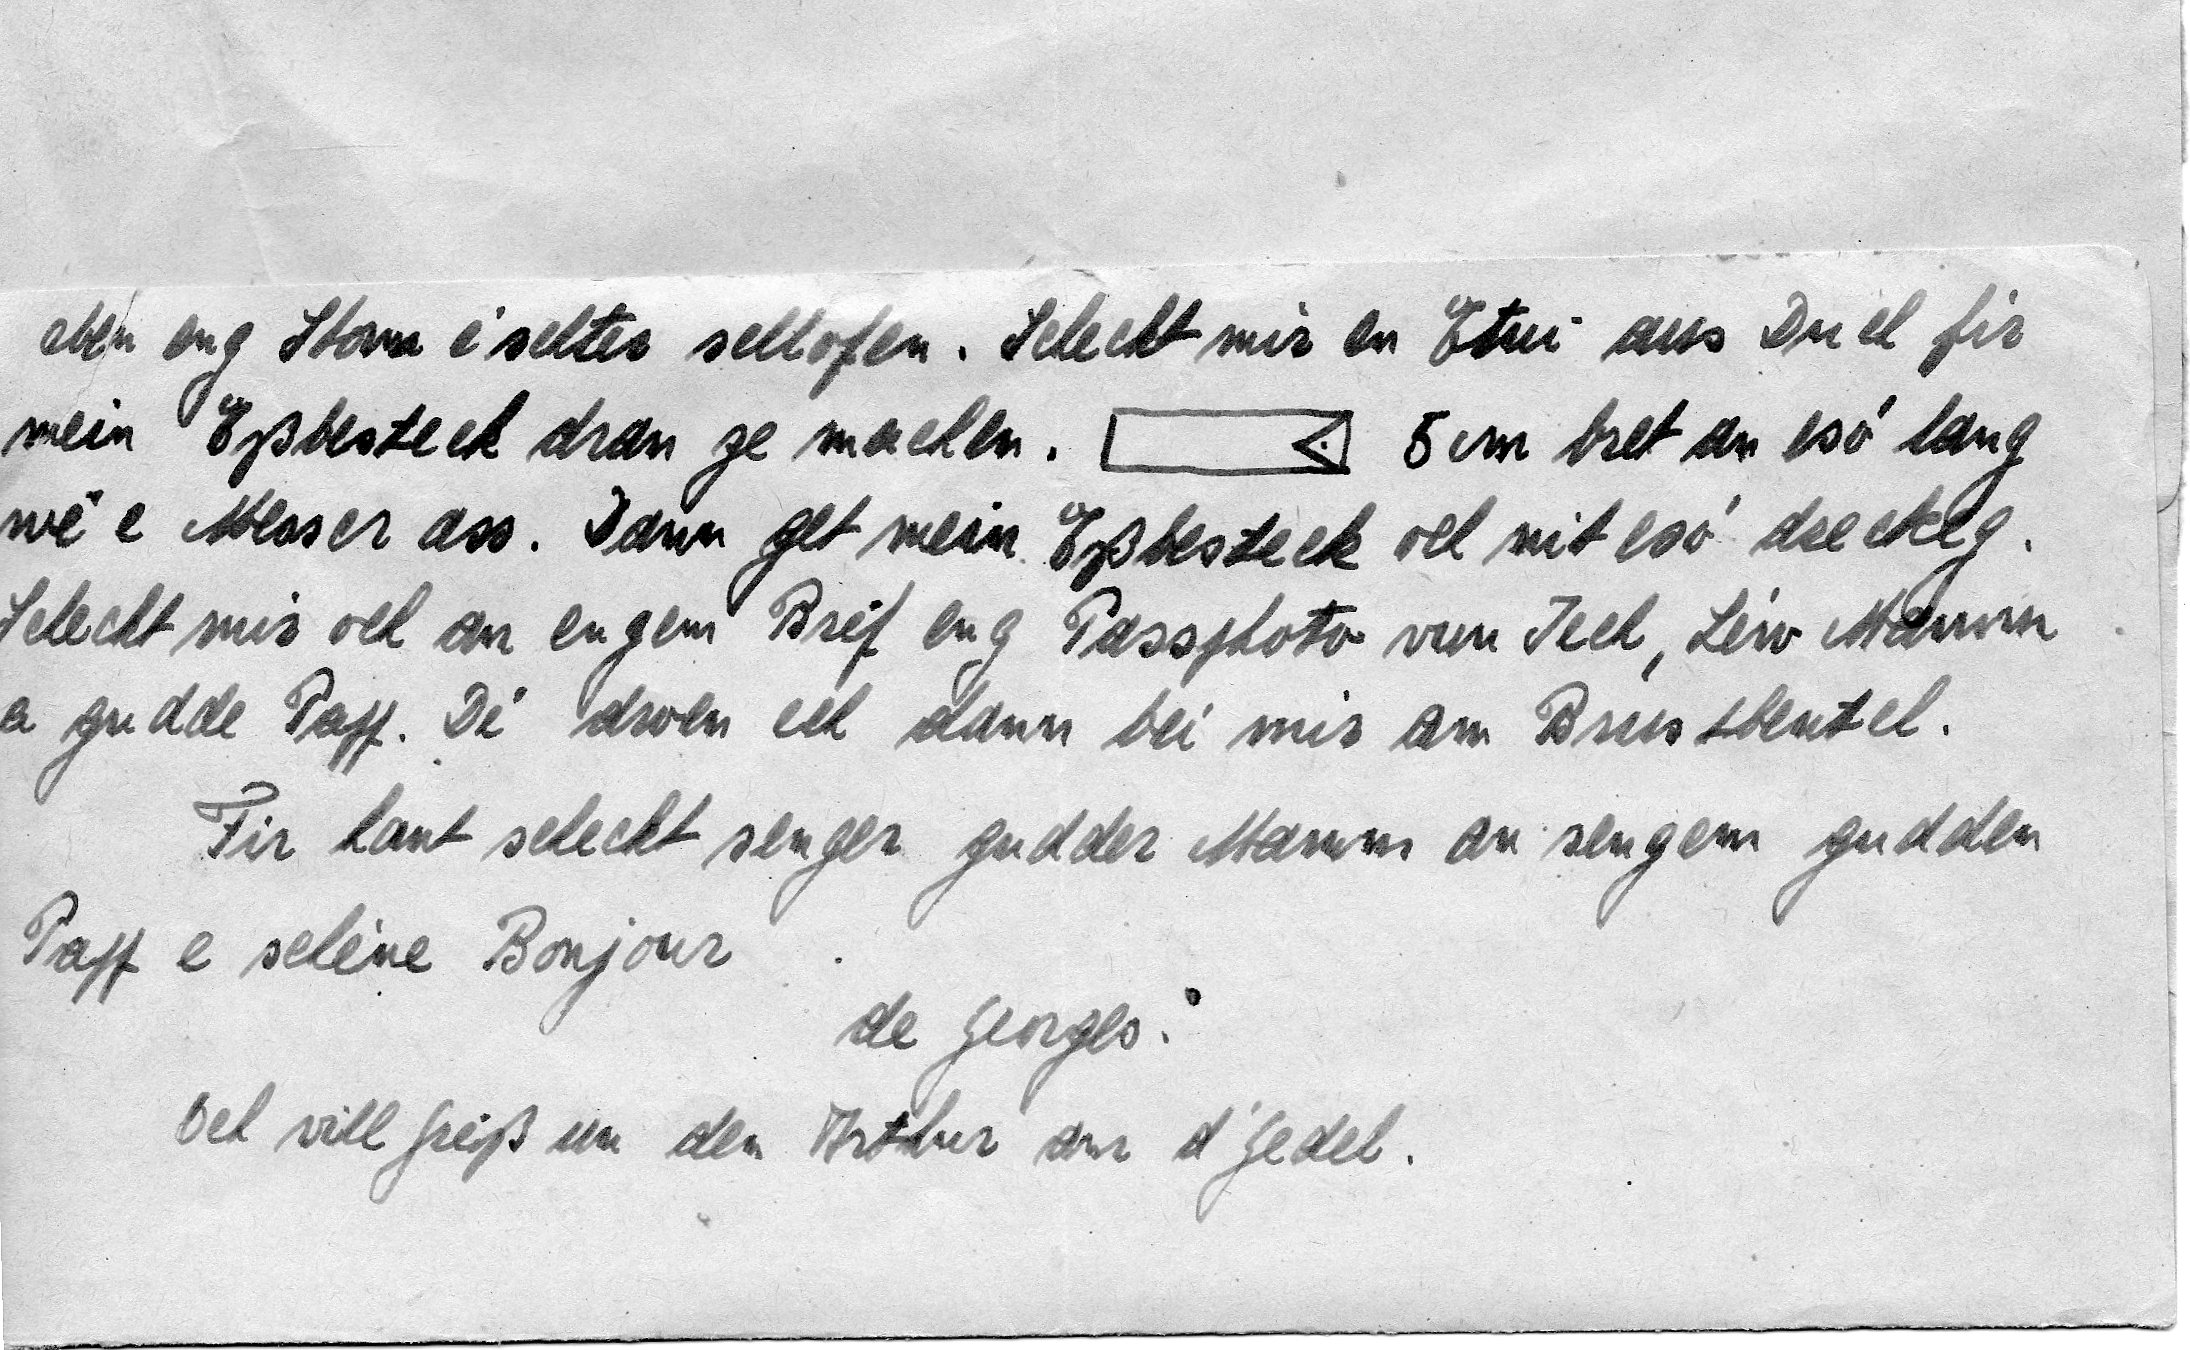 eben eng Stonn éischter schlofen. Scheckt mir en Etui aus Duch fir
mein Eßbesteck dran ze machen. 5 cm bret an esó lang
wé e Messer ass. Dann get mein Eßbesteck och nit esó dreckeg.
Scheckt mir och an engem Bréf eng Passphoto vun Iech, Léiw Mamm
a gudde Papp. Dé droen ech dann bei mir am Brustbeutel.
Fir haut scheckt senger gudder Mamm an sengem gudden
Papp e schéine Bonjour
de Georges.
Och vill Gréiß un den Arthur an d'Gedel.